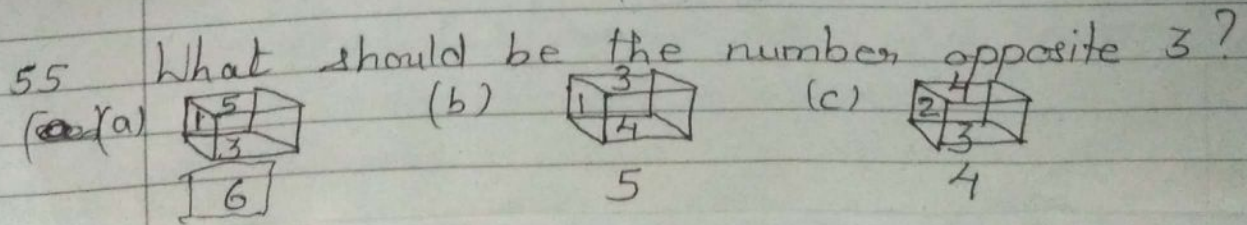 55 What should be the number opposite 3?
(a) 1 5 3 (b) 1 3 4 (c) 2 4 3
6 5 4